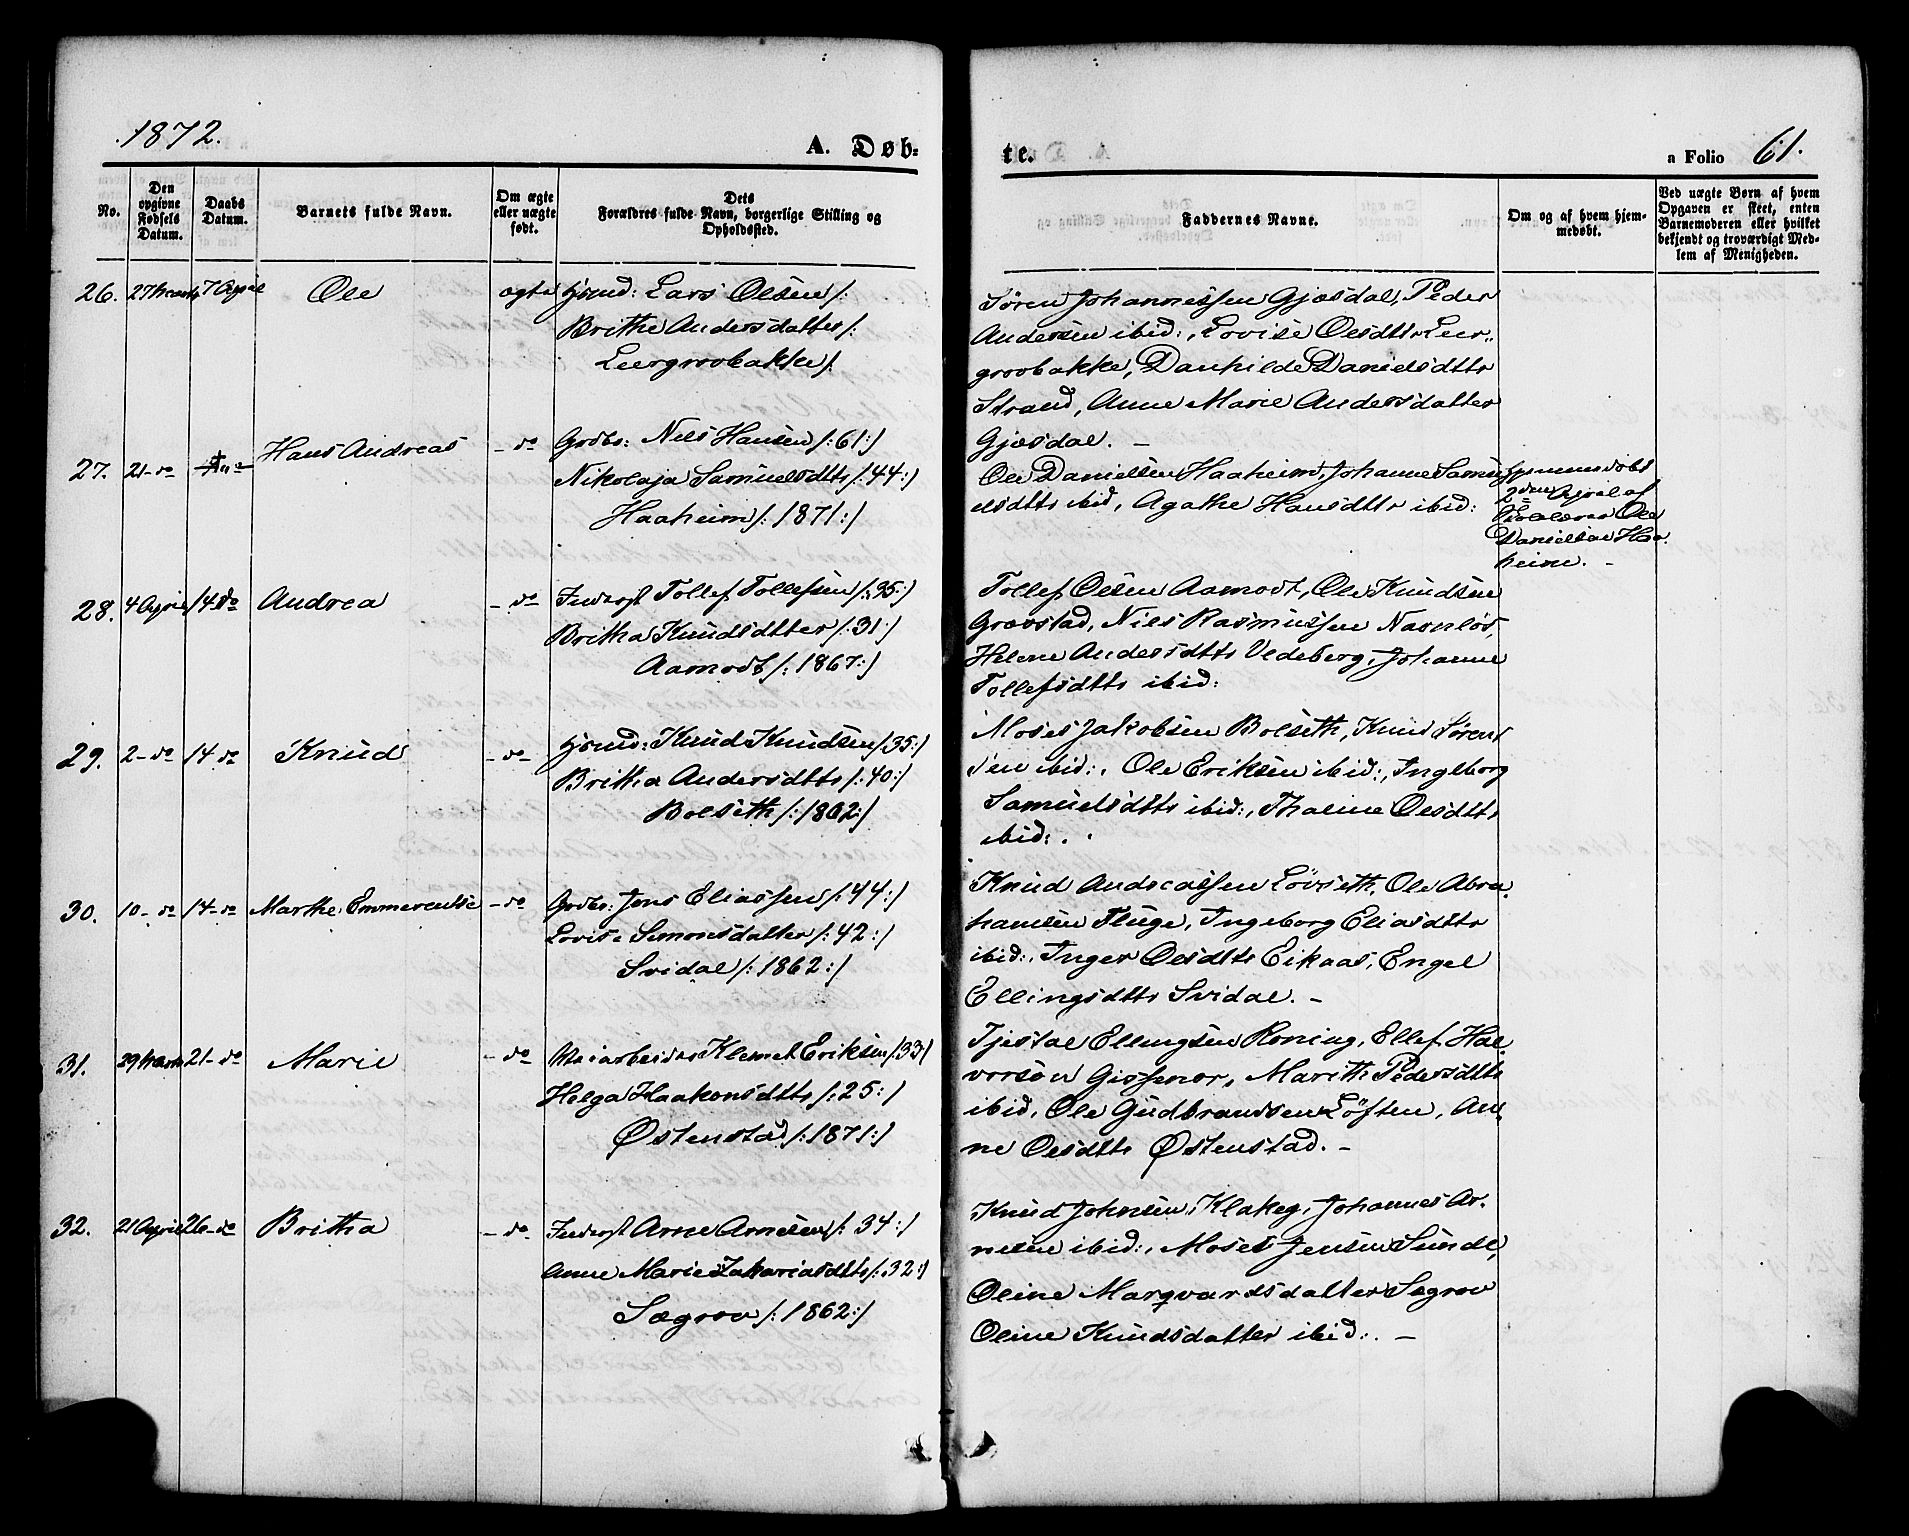 1872.
A. Døb-
te.
a Folio 61.
No.
Den opgivne Fødsels Datum.
Daabs Datum.
Barnets fulde Navn.
Om ægte eller uægte født.
Dets Forældres fulde Navn, borgerlige Stilling og Opholdssted.
Faddernes Navne.
Om og af hvem hjemmedøbt.
Ved uægte Børn af hvem Opgaven er skeet, enten Barnemoderen eller hvilket bekjendt og troværdigt Medlem af Menigheden.
26. 27 Marts 7 April Ole ægte Hjsmd: Lars Olsen /:
Brithe Andersdatter /:
Leergrovbakke /:
Søren Johannessen Gjæsdal, Peder
Andersen ibid:, Lovise Olsdttr Leer-
grovbakke, Danhilde Danielsdttr
Strand, Anne Marie Andersdatter
Gjæsdal. –
27. 21 – do Hans Andreas – do Grdbr: Niels Hansen /: 61 :/
Nikolaja Samuelsdttr /: 44 :/
Haaheim /: 1871 :/
Ole Danielsen Haaheim, Johanne Samu-
elsdttr ibid, Agathe Hansdttr ibid:
Hjemmedøbt
2den April af
Ole
Danielsen Haa-
heim. –
28. 4 April 14 do Andrea – do Inderst Tollef Tollefsen /: 35 :/
Britha Knudsdtter /: 31 :/
Aamodt /: 1867 :/
Tollef Olsen Aamodt, Ole Knudsen
Grovstad, Niels Rasmussen Navnløs,
Helene Andersdttr Vedeberg, Johanne
Tollefsdttr ibid:
29. 2 – do 14 – do Knud – do – Hjsmd: Knud Knudsen /: 35 :/
Britha Andersdttr /: 40 :/
Bolseth /: 1862 :/
Moses Jakobsen Bolseth, Knud Sørens-
sen ibid:, Ole Eriksen ibid:, Ingeborg
Samuelsdttr ibid:, Thaline Olsdttr
ibid:.
30. 10 – do 14 – do Marthe Emmerentse – do Grdbr: Jens Eliassen /: 44 :/
Lovise Simonsdatter /: 42 :/
Svidal /: 1862 :/
Knud Andreassen Løvseth, Ole Abra-
hamsen Fluge, Ingeborg Eliasdttr
ibid:, Inger Olsdttr Eikaas, Engel
Ellingsdttr Svidal. –
31. 29 Marts 21 – do Marie – do Veiarbeider Klemet Eriksen /: 33 :/
Helga Haakensdttr /: 25 :/
Østenstad /: 1871 :/
Tjestal Ellingsen Roning, Ellef Hal-
vorsøn Marith Pedersdttr
ibid, Ole Gudbrandsen Løften, An-
ne Olsdttr Østenstad. –
32. 21 April 26 – do Britha – do Inderst Arne Arnesen /: 34 :/
Anne Marie Zakariasdttr /: 32 :/
Sægrov /: 1862 :/
Knud Johnsen Klakeg, Johannes Ar-
nesen ibid:, Moses Jensen Sunde,
Oline Marqvardsdatter Sægrov
Oline Knudsdatter ibid:. –